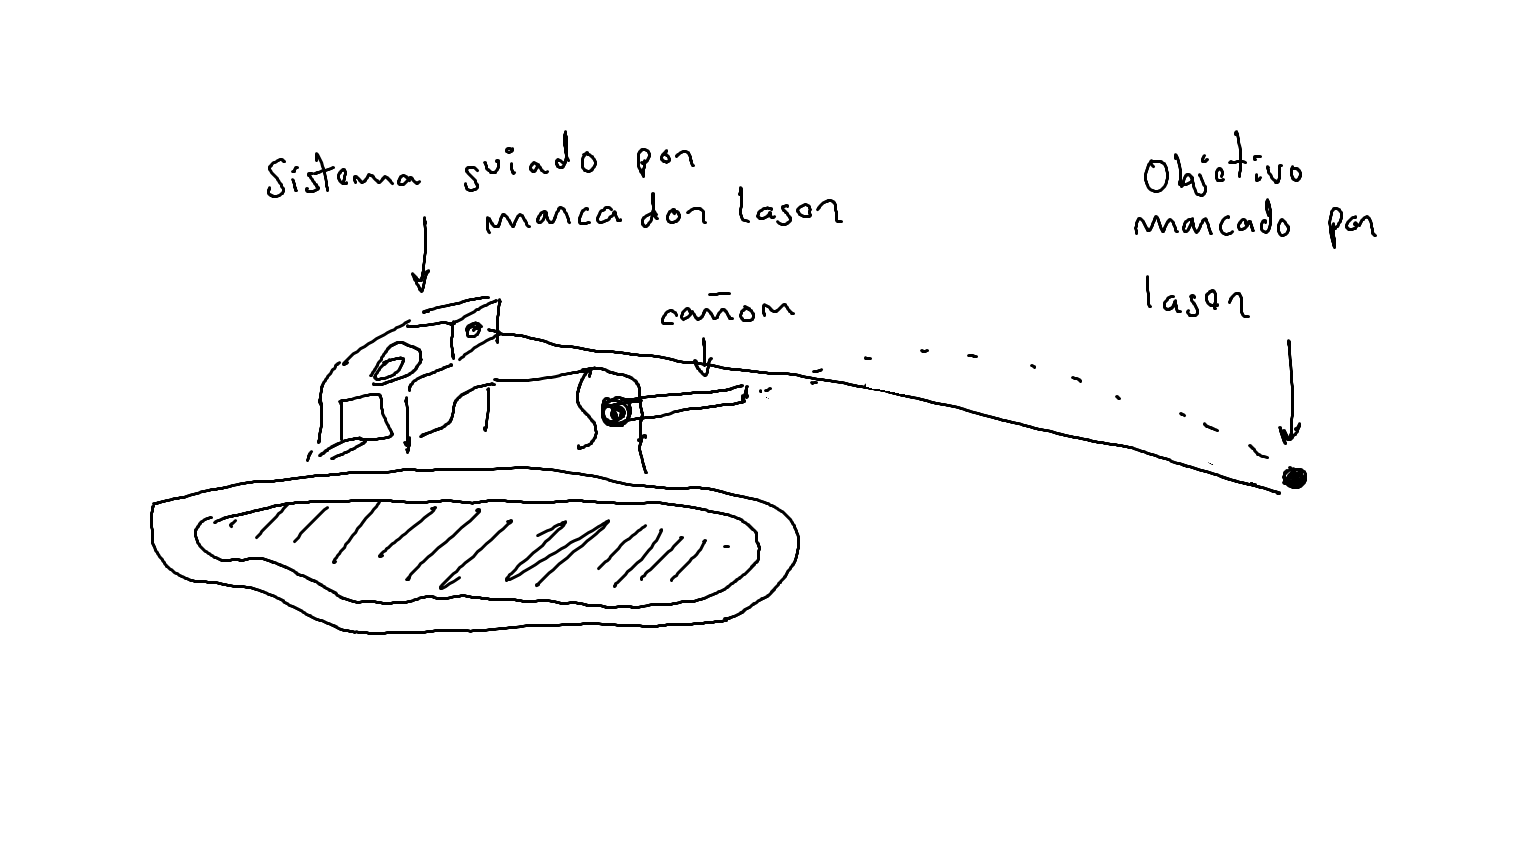 Sistema guiado por
marcador laser
Objetivo
marcado por
laser
cañom